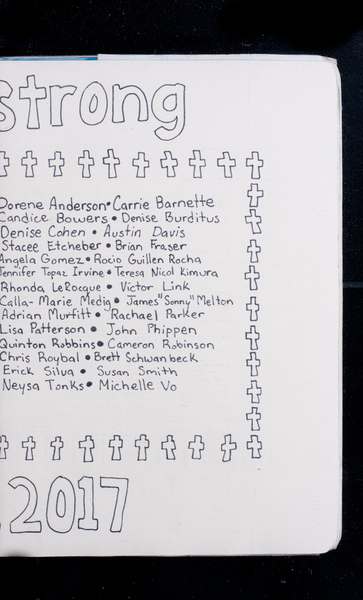 strong
Dorene Anderson • Carrie Barnette
Candice Bowers • Denise Burditus
Denise Cohen • Austin Davis
Stacee Etcheber • Brian Fraser
Angela Gomez • Rocio Guillen Rocha
Jennifer Topaz Irvine • Teresa Nicol Kimura
Rhonda LeRocque • Victor Link
Calla-Marie Medig • James "Sonny" Melton
Adrian Murfitt • Rachael Parker
Lisa Patterson • John Phippen
Quinton Robbins • Cameron Robinson
Chris Roybal • Brett Schwanbeck
Erick Silva • Susan Smith
Neysa Tonks • Michelle Vo
2017